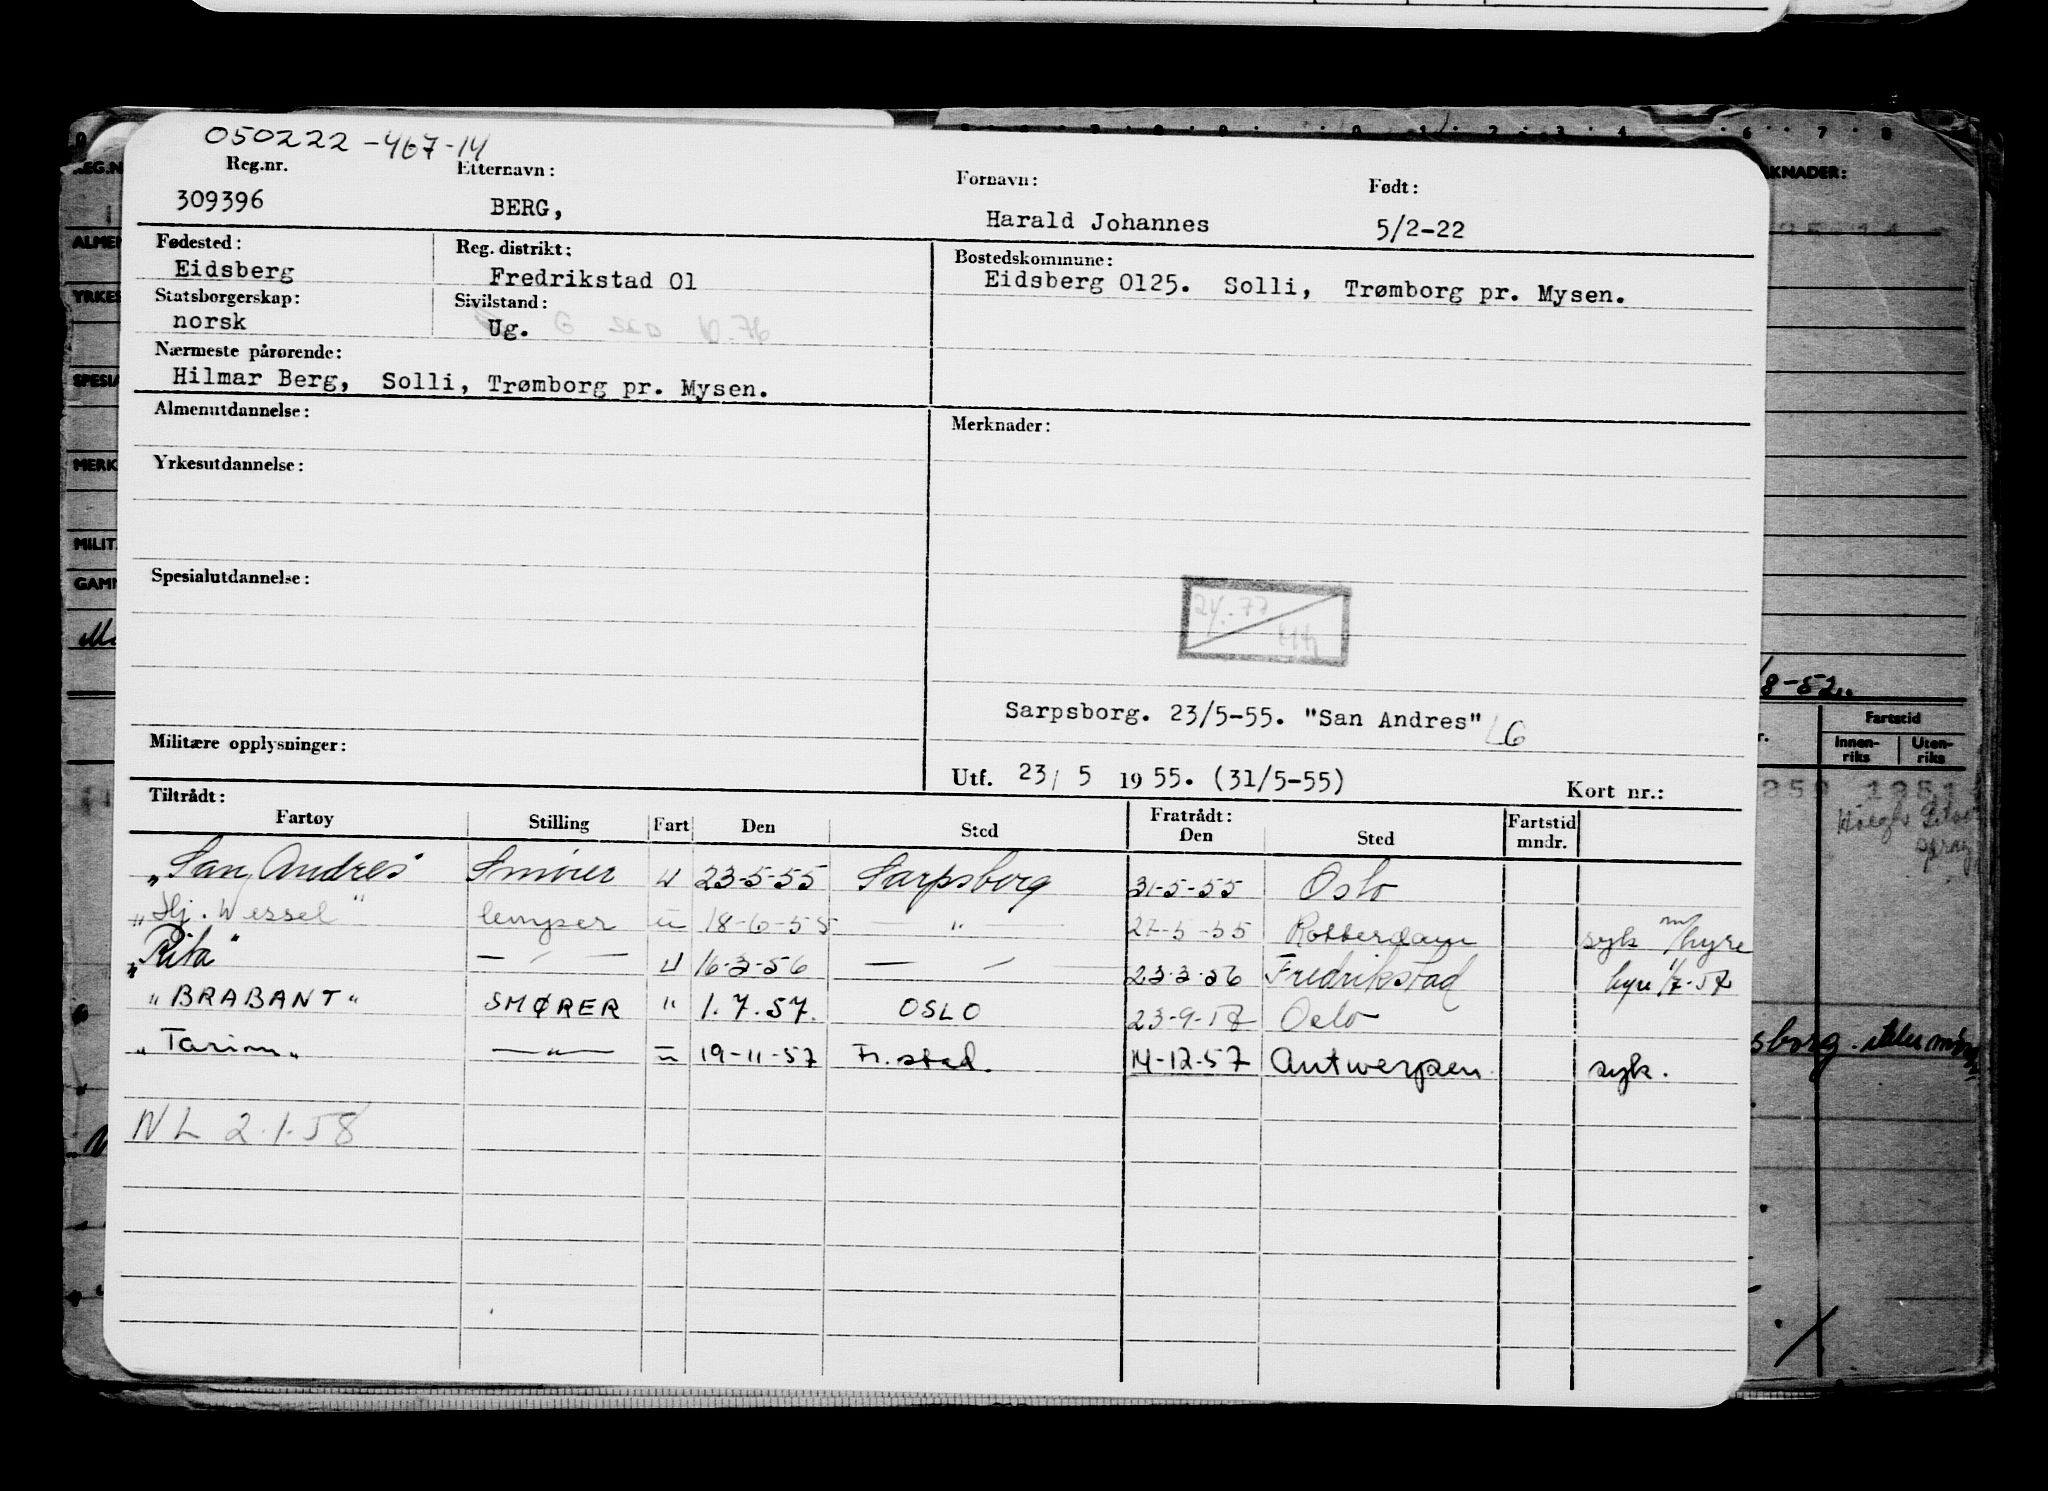 050222-467-14
Reg.nr. Etternavn: Fornavn: Født:
309396 BERG, Harald Johannes 5/2-22
Fødested: Reg. distrikt: Bostedskommune:
Eidsberg Fredrikstad 01 Eidsberg 0125. Solli, Trømborg pr. Mysen.
Statsborgerskap: Sivilstand:
norsk Ug.
Nærmeste pårørende:
Hilmar Berg, Solli, Trømborg pr. Mysen.
Almenutdannelse: Merknader:
Yrkesutdannelse:
Spesialutdannelse:
Sarpsborg. 23/5-55. "San Andres"
Militære opplysninger:
Utf. 23/ 5 1955. (31/5-55) Kort nr.:
Tiltrådt: Fratrådt:
Fartøy Stilling Fart Den Sted Den Sted Fartstid mndr.
"San Andres" Smører U 23-5-55 Sarpsborg 31-5-55 Oslo
"Hj. Wessel" lemper u 18-6-55 — " — Rotterdam syk m/hyre
"Rita" — " — U 16-3-56 — " — 23-3-56 Fredrikstad hyre 1/7-57
"BRABANT" SMØRER " 1.7.57. OSLO Oslo
"Tarim" — " — u 19-11-57 Fr.stad. 14-12-57 Antwerpen syk.
NL 2.1.58
KNADER:
/8-52.
Fartstid
Innen-riks Uten-riks